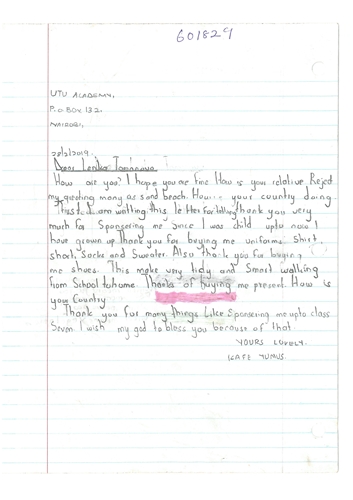 601829
UTU ACADEMY,
P.O BOX 132,
NAIROBI,
28/2/2019.
Dear
How are you? I hope you are fine How is your relative Reject
my greeting many as sand beach. How is your country doing.
I am writting this letter for telling thank you very
much for Sponsering me since I was child upto now I
have grown up Thank you for buying me uniforms Shirt,
short, Socks and Sweater. Also thank you for buying
me shoes. This make very tidy and Smart walking
from School to home Thanks of buying me present. How is
your Country
Thank you for many things Like Sponsering me upto class
Seven I wish my god to bless you because of that
YOURS LOVELY.
KAFE YUNUS.